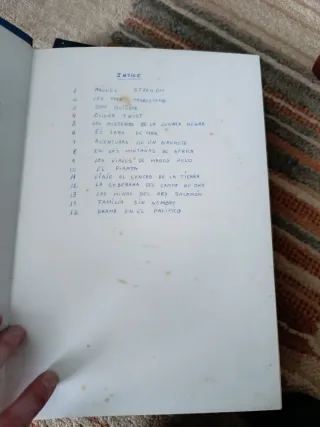 INDICE
1 MIGUEL STROGOFF
2 LOS TRES MOSQUETEROS
3 DON QUIJOTE
4 OLIVER TWIST
5 LOS MISTERIOS DE LA JUNGLA NEGRA
6 EL LOBO DE MAR
7 AVENTURAS DE UN GRUMETE
8 EN LAS MONTAÑAS DE AFRICA
9 LOS VIAJES DE MARCO POLO
10 EL PIRATA
11 VIAJE AL CENTRO DE LA TIERRA
12 LA SOBERANA DEL CAMPO DE ORO
13 LAS MINAS DEL REY SALOMÓN
14 FAMILIA SIN NOMBRE
15 DRAMA EN EL PACIFICO